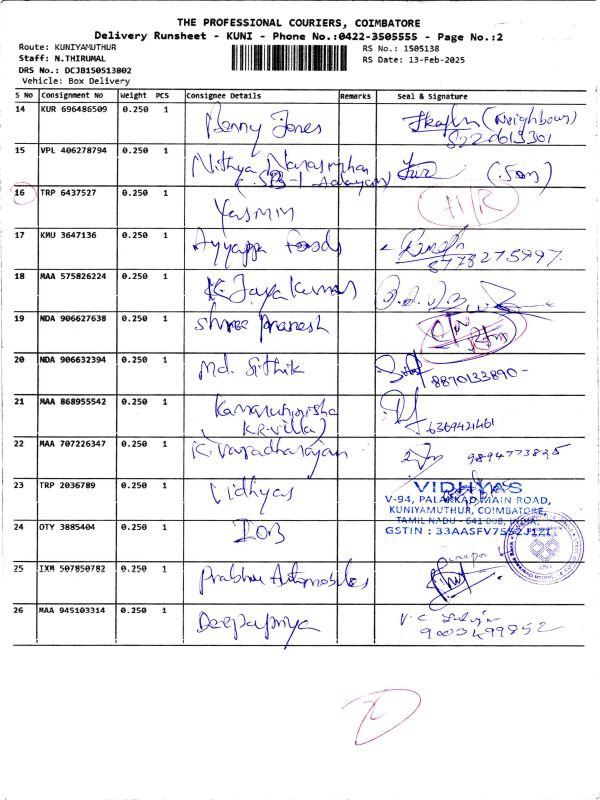 THE PROFESSIONAL COURIERS, COIMBATORE
Delivery Runsheet - KUNI - Phone No.:0422-3505555 - Page No.:2
Route: KUNIYAMUTHUR
RS No.: 1505138
Staff: N.THIRUMAL
RS Date: 13-Feb-2025
DRS No.: DCJB150513802
Vehicle: Box Delivery
S No Consignment No Weight PCS Consignee Details Remarks Seal & Signature
14 KUR 696486509 0.250 1 Benny Jones (Neighbour)
15 VPL 406278794 0.250 1 Nithya Narasimhan (Son)
16 TRP 6437527 0.250 1 Yasmin
17 KMU 3647136 0.250 1 Ayyappa Foods
18 MAA 575826224 0.250 1 K. Jaya Kumar
19 NDA 906627638 0.250 1 Shree Pranesh
20 NDA 906632394 0.250 1 Md. Sithik 8870133890 -
21 MAA 868955542 0.250 1
K.R. Villa) 6369421461
22 MAA 707226347 0.250 1 K. Varadharajan 9894773825
23 TRP 2036789 0.250 1 Vidhyas
VIDHYAS
V-94, PALAKKAD MAIN ROAD,
KUNIYAMUTHUR, COIMBATORE,
TAMIL NADU - 641 008, INDIA.
24 OTY 3885404 0.250 1 IOB
25 IXM 507850782 0.250 1 Prabhu Automobiles
26 MAA 945103314 0.250 1 Deepapriya